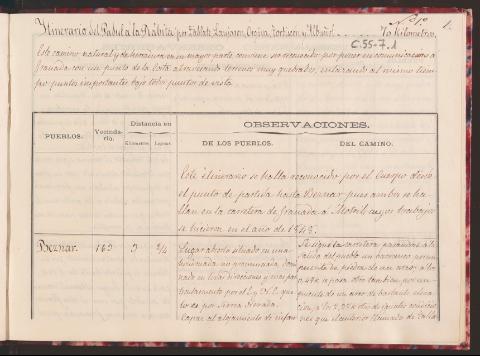 Nº 1º
1.
Itinerario del Padul a la Rábita por Tablate, Lanjaron, Orgiva, Torbiscon y Albuñol ..... 70 Kilómetros.
C.55-7.1
Este camino natural y de herradura en su mayor parte conviene ser reconocido por poner en comunicacion a
Granada con un punto de la Costa atravesando terreno muy quebrado, enlazando al mismo tiem-
po puntos importantes bajo todos puntos de vista.
PUEBLOS.
Vecinda-
rio.
Distancia en
Kilómetros
Leguas
OBSERVACIONES.
DE LOS PUEBLOS.
DEL CAMINO.
Este itinerario se halla reconocido por el Cuerpo desde
el punto de partida hasta Beznar pues ambos se ha-
llan en la carretera de Granada a Motril cuyos trabajos
se hicieron en el año de 1848.
Beznar.
163
3/4
Lugar abierto situado en una
dominado en todas direcciones y mas por
por el E y N.E. que
lo es por Sierra Nevada.
Capaz al alojamiento de infan
Se sigue la carretera pasandose a la
salida del pueblo un barranco por un
puente de piedra de un arco; a los
0,49 K se pasa otro tambien por un
puente de un arco de bastante eleva-
cion,
nes que el anterior llamado de